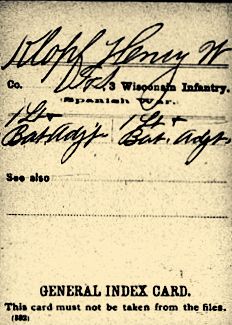 Klopf, Henry W
Co. , 3 Wisconsin Infantry.
Spanish War.
1 Lt & 1 Lt &
Bat Adjt Bat. Adjt.
See also
GENERAL INDEX CARD.
This card must not be taken from the files.
(582)